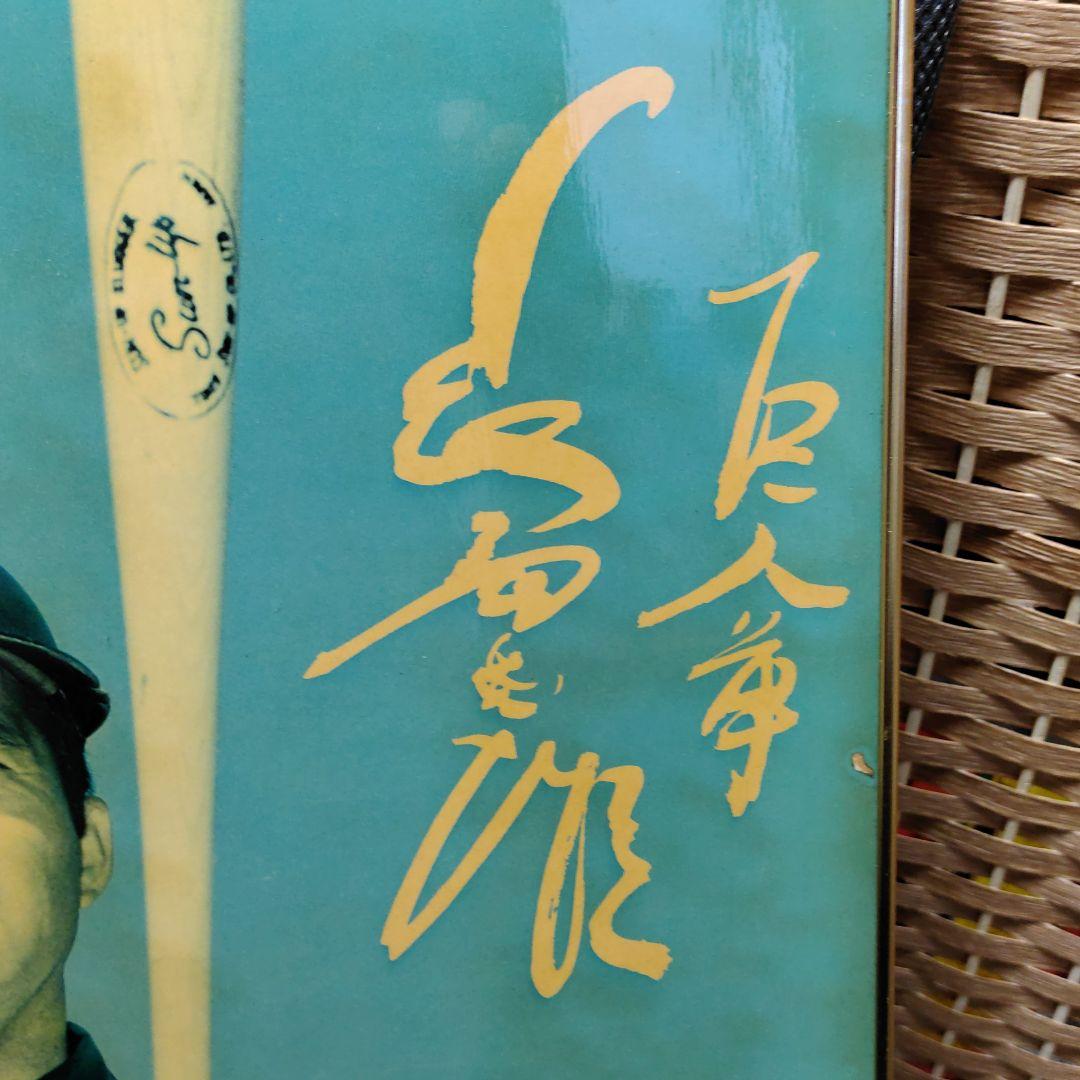 巨人軍
長島茂雄
Sun Up